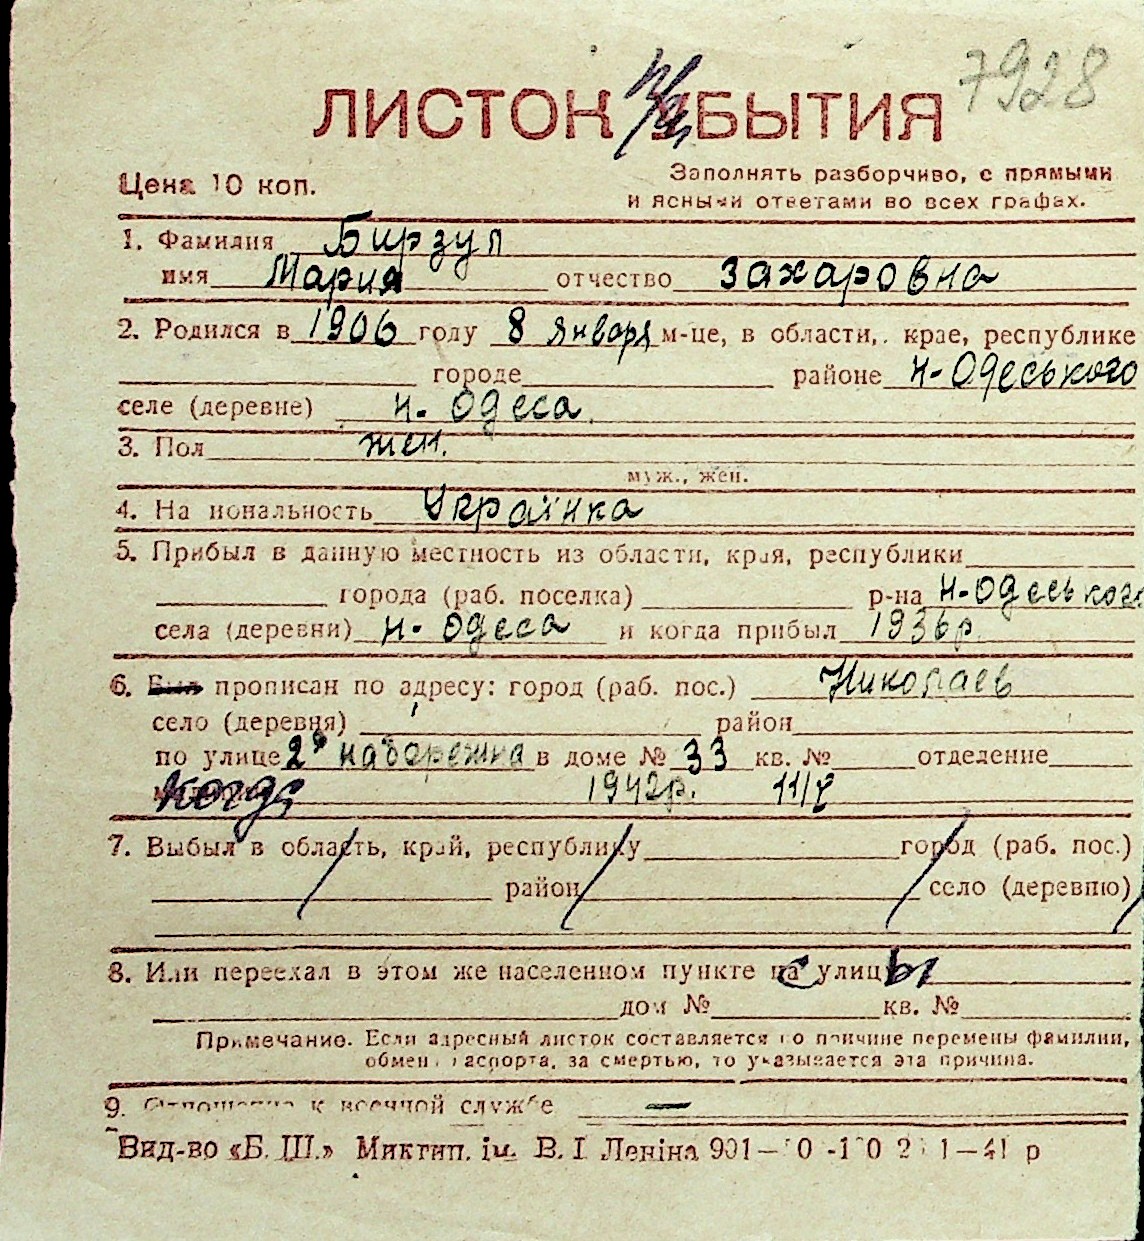 7928
ЛИСТОК ПРИБЫТИЯ
Цена 10 коп.
Заполнять разборчиво, с прямыми
и ясными ответами во всех графах.
1. Фамилия Бирзул
имя Мария отчество Захаровна
2. Родился в 1906 году 8 января м-це, в области, крае, республике
городе районе Н-Одеського
селе (деревне) Н. Одеса
3. Пол жен.
муж., жен.
4. Национальность Українка
5. Прибыл в данную местность из области, края, республики
города (раб. поселка) р-на Н-Одеського
села (деревни) Н. Одеса и когда прибыл 1936 р.
6. Был прописан по адресу: город (раб. пос.) Николаев
село (деревня) район
по улице 2я набережна в доме № 33 кв. № отделение
когда 1942 р.
7. Выбыл в область, край, республику город (раб. пос.)
район село (деревню)
8. Или переехал в этом же населенном пункте с улицы
дом № кв. №
Примечание. Если адресный листок составляется по причине перемены фамилии,
обмена паспорта, за смертью, то указывается эта причина.
9. Отношение к военной службе —
Вид-во «Б. Ш.» Миктип. ім. В. І Леніна